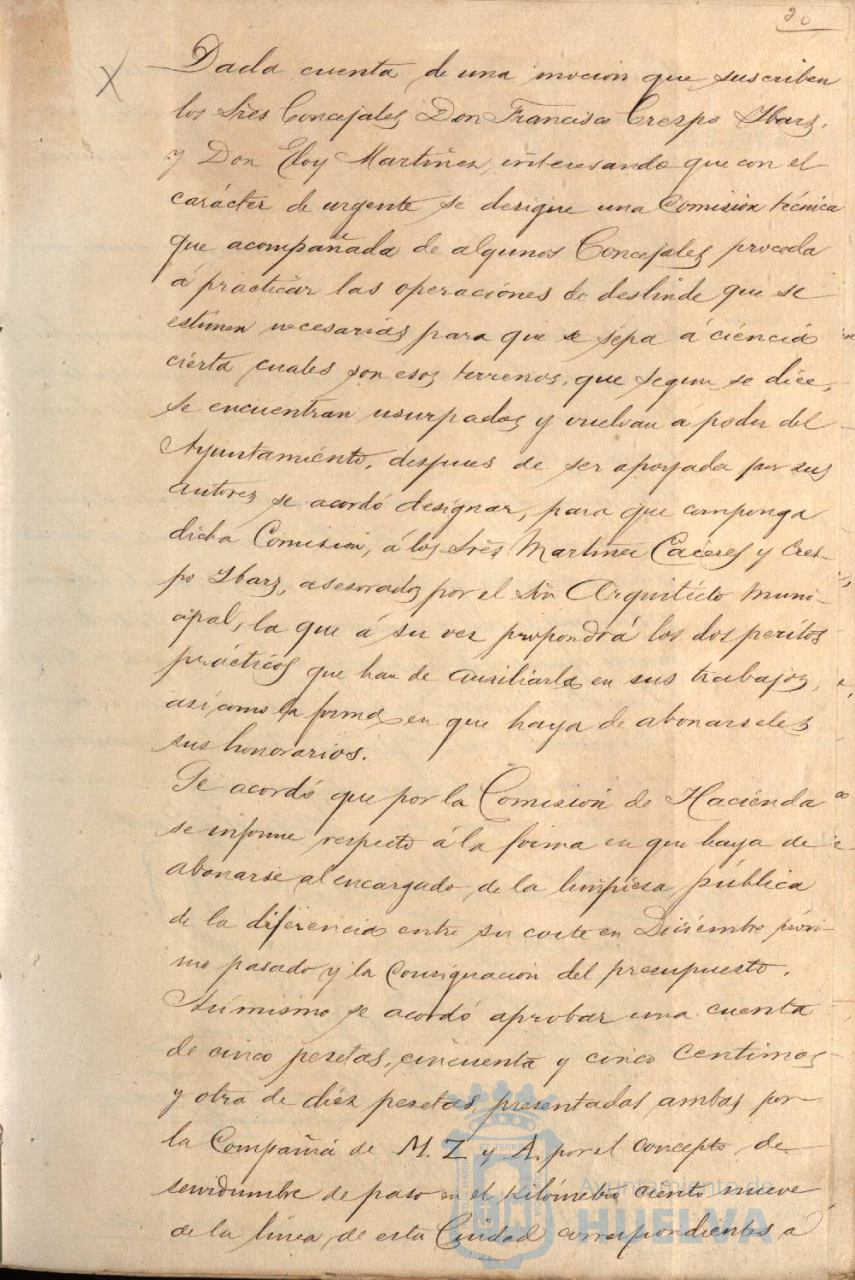 20
Dada cuenta de una mocion que suscriben
los Sres Concejales Don Francisco Crespo Ybarz,
y Don Eloy Martinez, interesando que con el
carácter de urgente se designe una Comision técnica
que acompañada de algunos Concejales proceda
á practicar las operaciones de deslinde que se
estimen necesarias para que se sepa á ciencia
cierta cuales son esos terrenos, que segun se dice,
se encuentran usurpados y vuelvan á poder del
Ayuntamiento, despues de ser apoyada por sus
autores se acordó designar, para que componga
dicha Comisión, á los Sres Martinez Caceres y Cres-
po Ybarz, asesorados por el Sor Arquitecto Muni-
cipal, la que á su vez propondrá los dos peritos
prácticos que han de auxiliarla en sus trabajos,
asi como la forma en que haya de abonarseles
sus honorarios.
Se acordó que por la Comisión de Hacienda
se informe respecto á la forma en que haya de
abonarse al encargado de la limpiesa pública
de la diferencia entre su coste en Diciembre próxi-
mo pasado y la Consignacion del presupuesto.
Asimismo se acordó aprobar una cuenta
de cinco pesetas, cincuenta y cinco centimos
y otra de diez pesetas presentadas ambas por
la Compañia de M. Z y A. por el concepto de
servidumbre de paso en el Kilómetro ciento nueve
de la linea de esta Ciudad correspondientes á
Ayuntamiento de
HUELVA